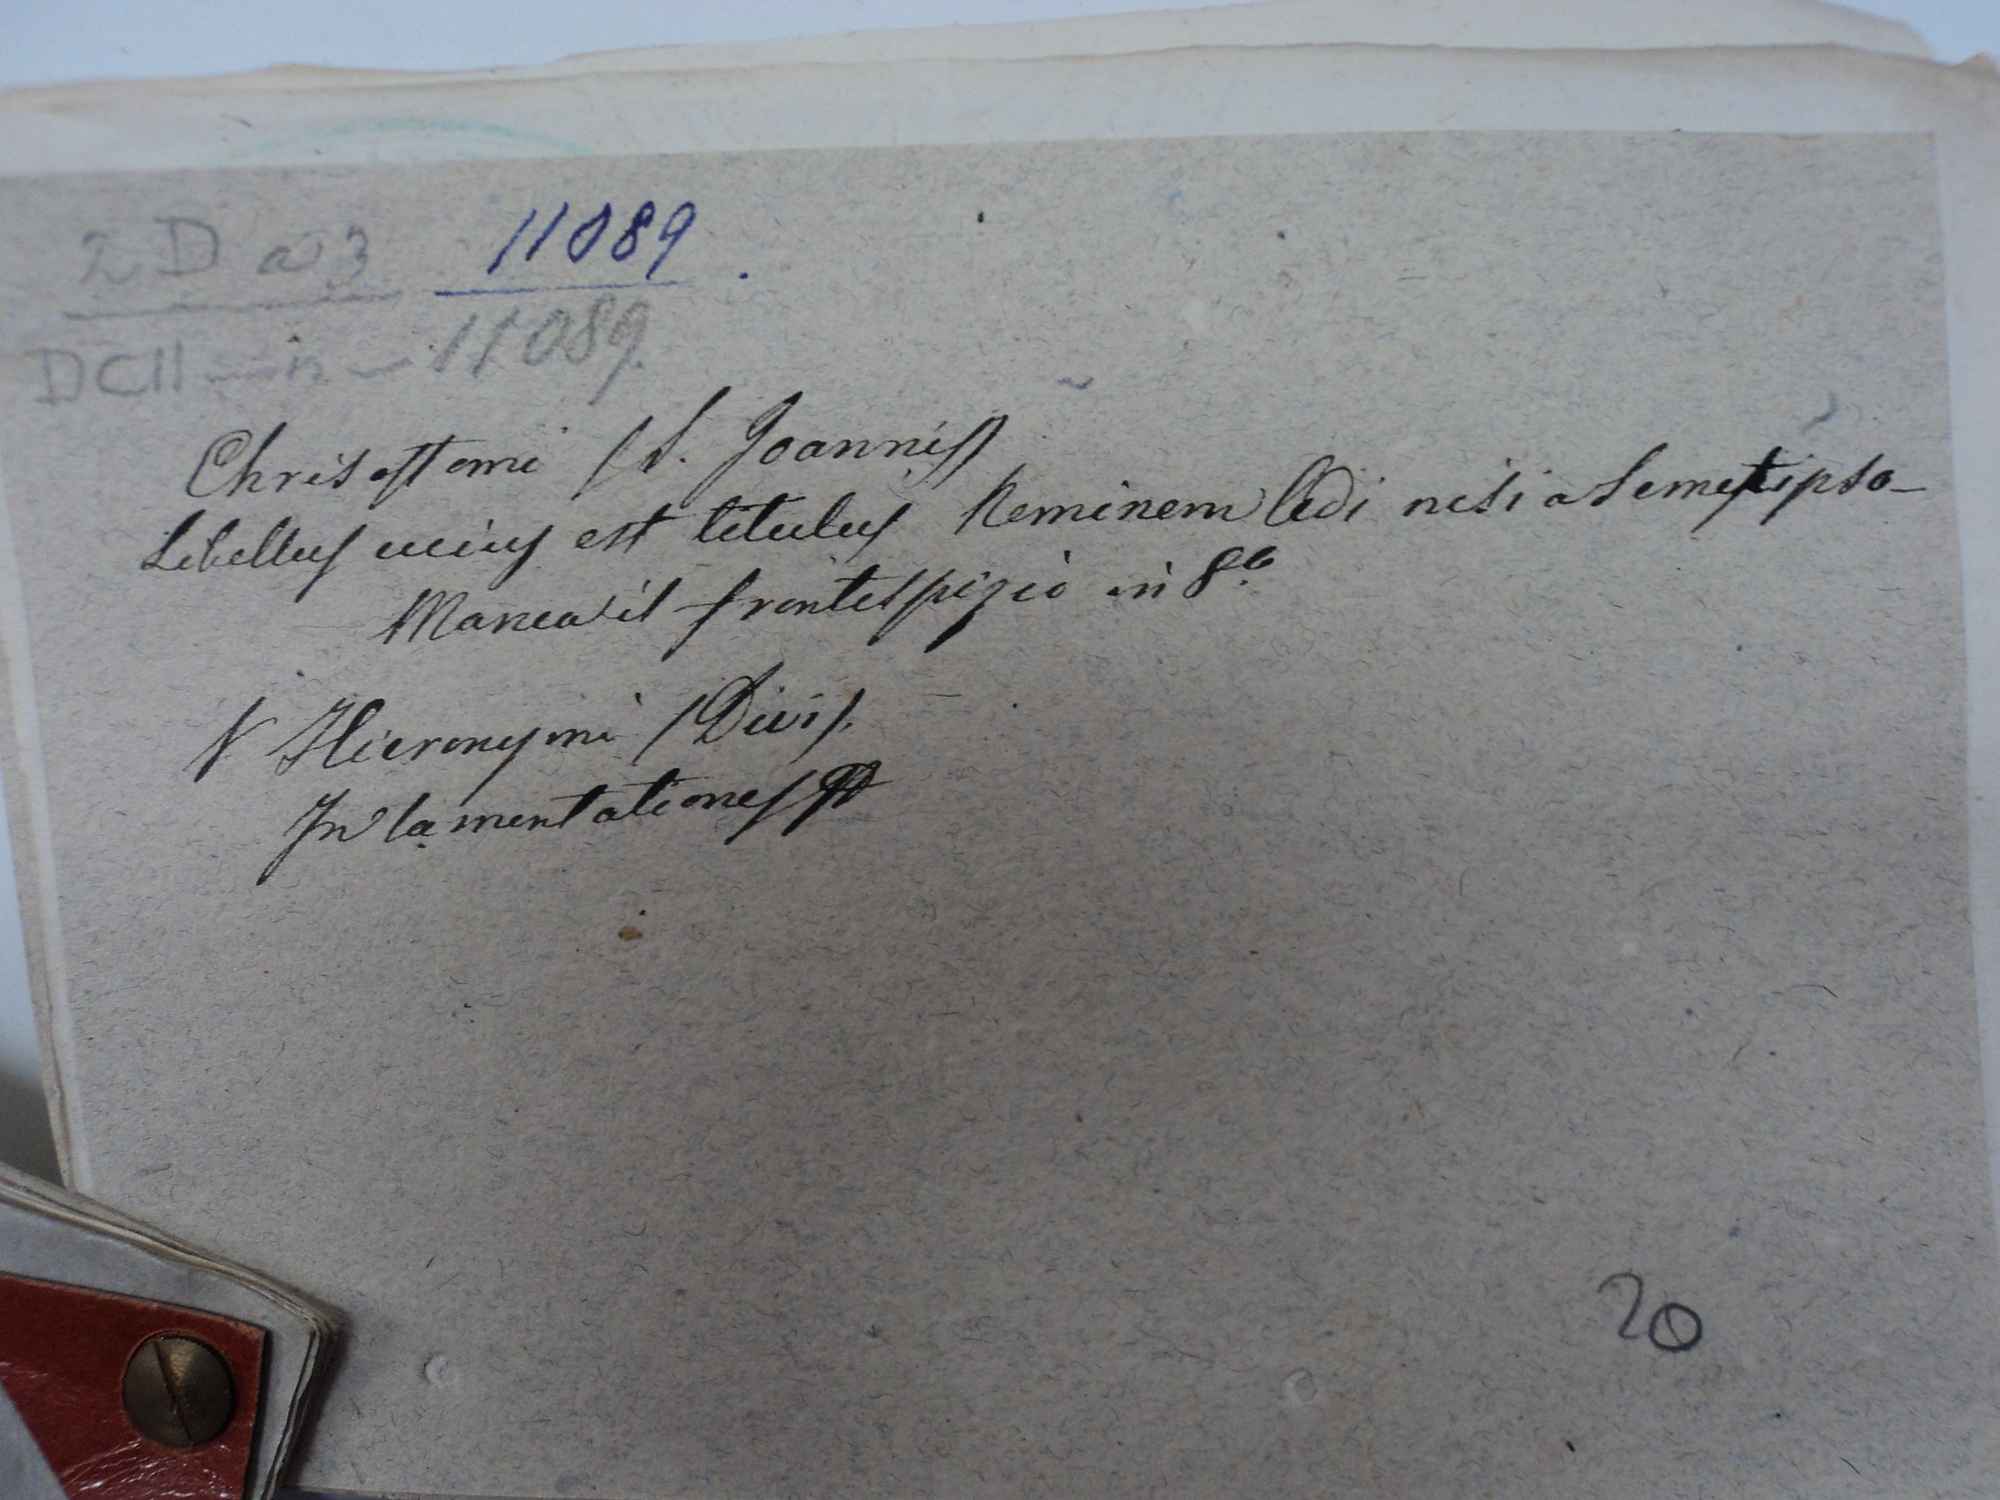 2 D a 3 11089.
DCII 11089.
Chrisostomi (S. Joannis)
Libellus cuius est titulus Neminem ledi nisi a semetipso
Manca il frontespizio in 8º
V Hieronymi (Divi).
In lamentationes
20